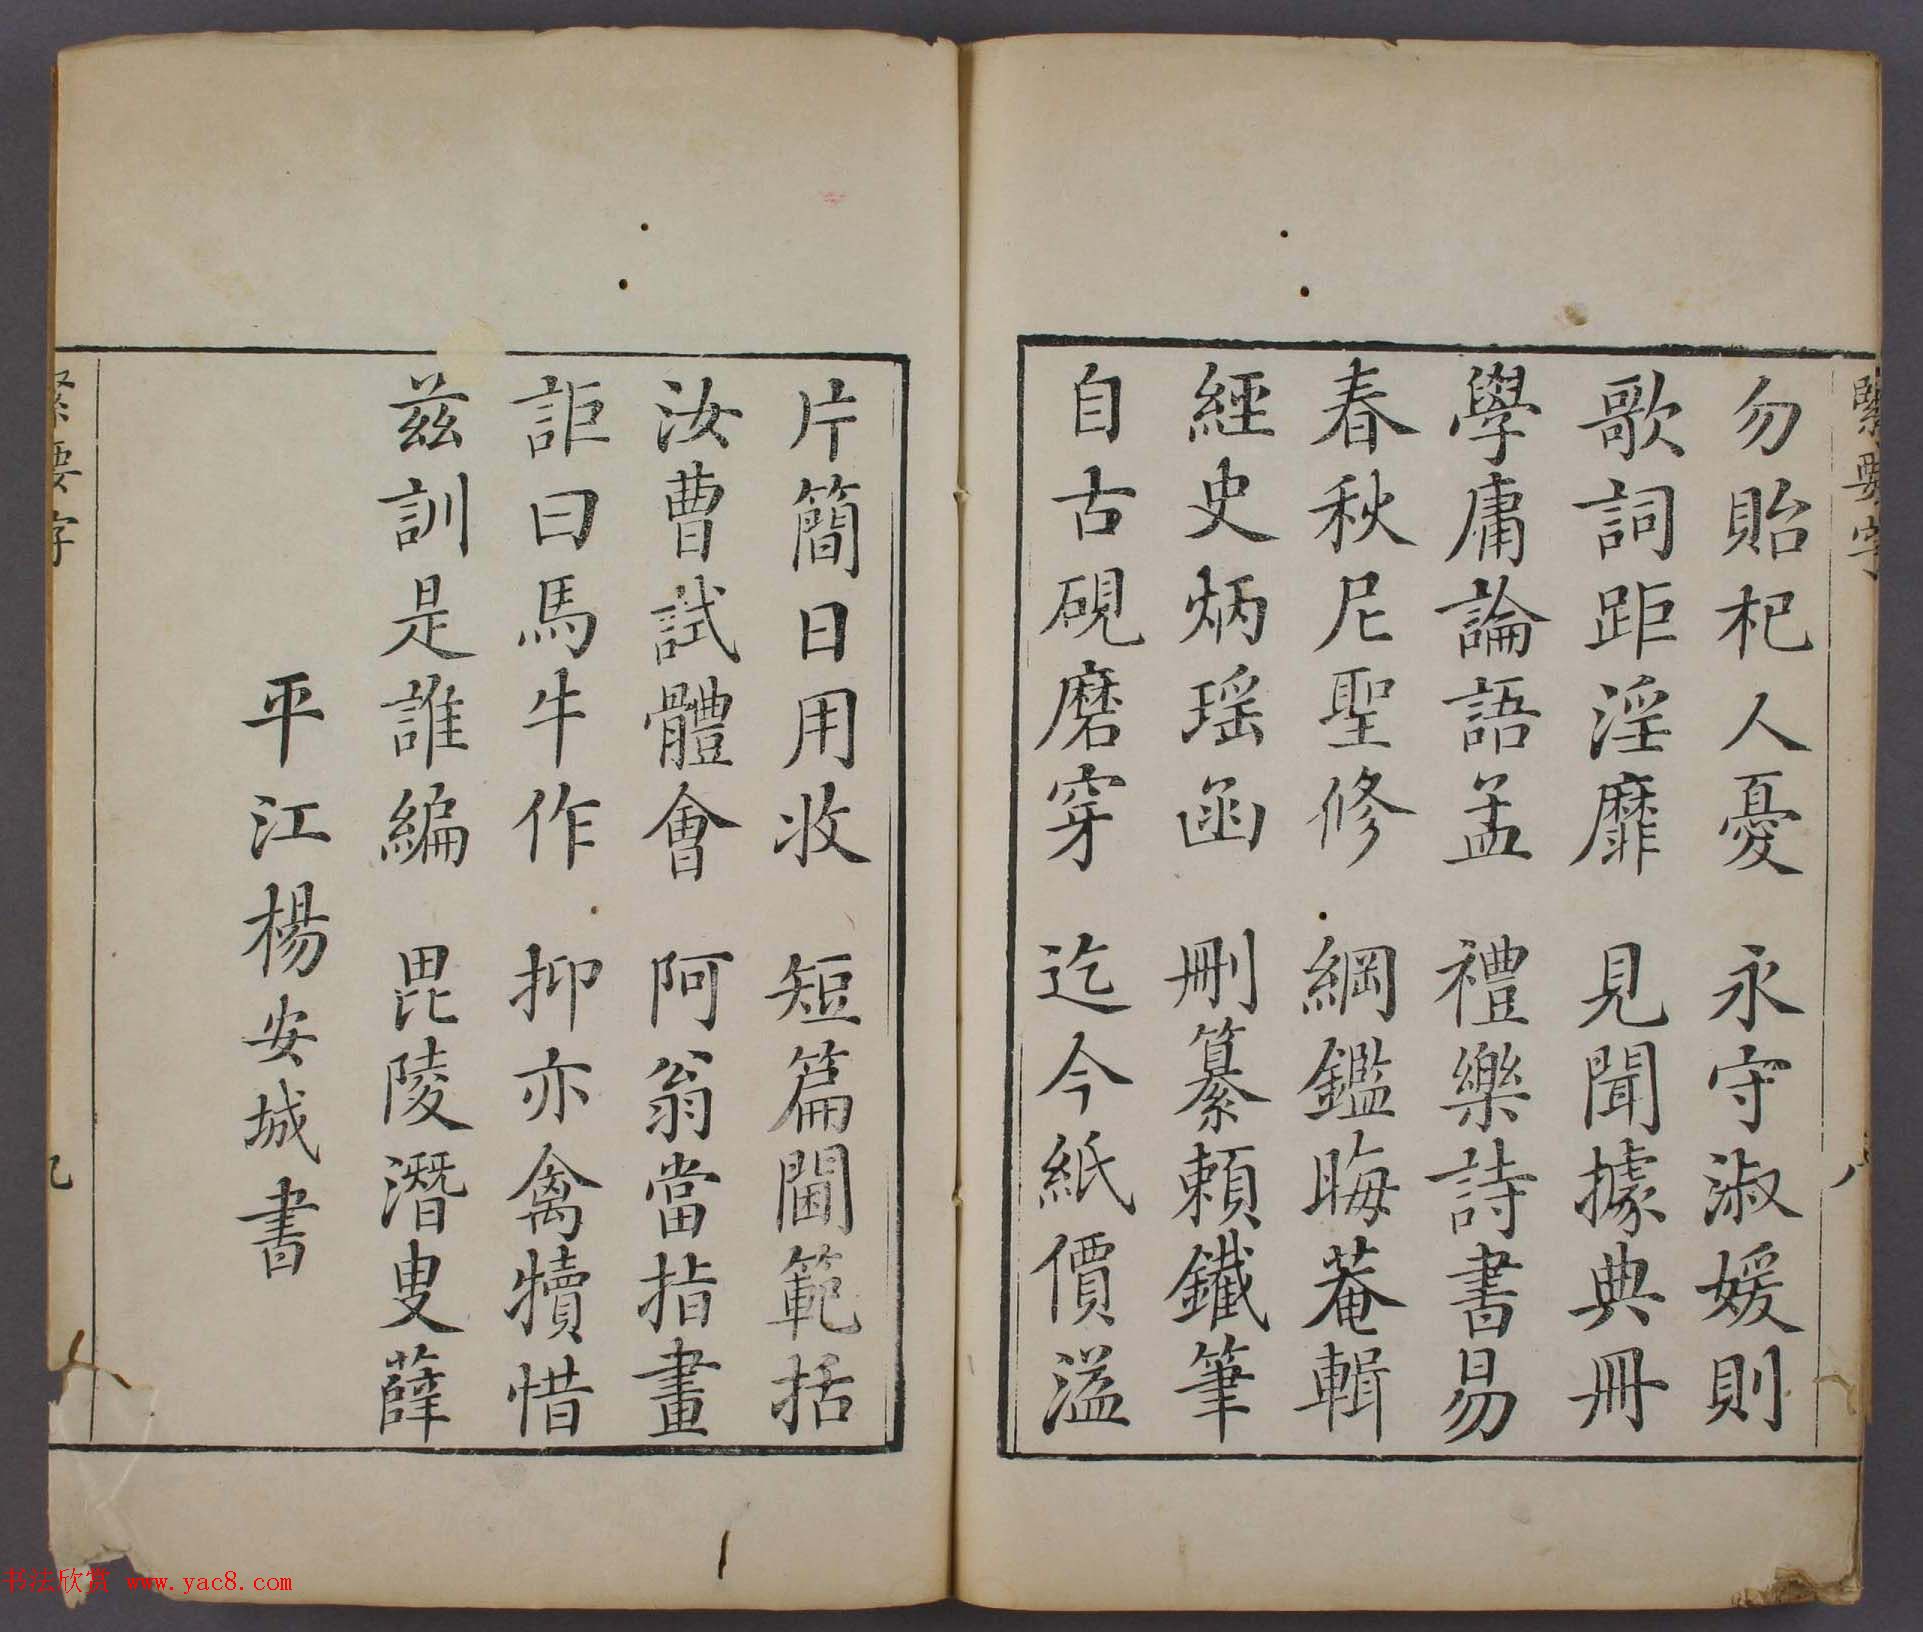 緊要字
八
勿貽杞人憂 永守淑媛則
歌詞距淫靡 見聞據典冊
學庸論語孟 禮樂詩書易
春秋尼聖修 綱鑑晦菴輯
經史炳瑶函 刪纂賴鐵筆
自古硯磨穿 迄今紙價溢
片簡日用收 短篇閫範括
汝曹試體會 阿翁當指畫
詎曰馬牛作 抑亦禽犢惜
茲訓是誰編 毘陵潛叟薛
平江楊安城書
緊要字
九
书法欣赏 www.yac8.com